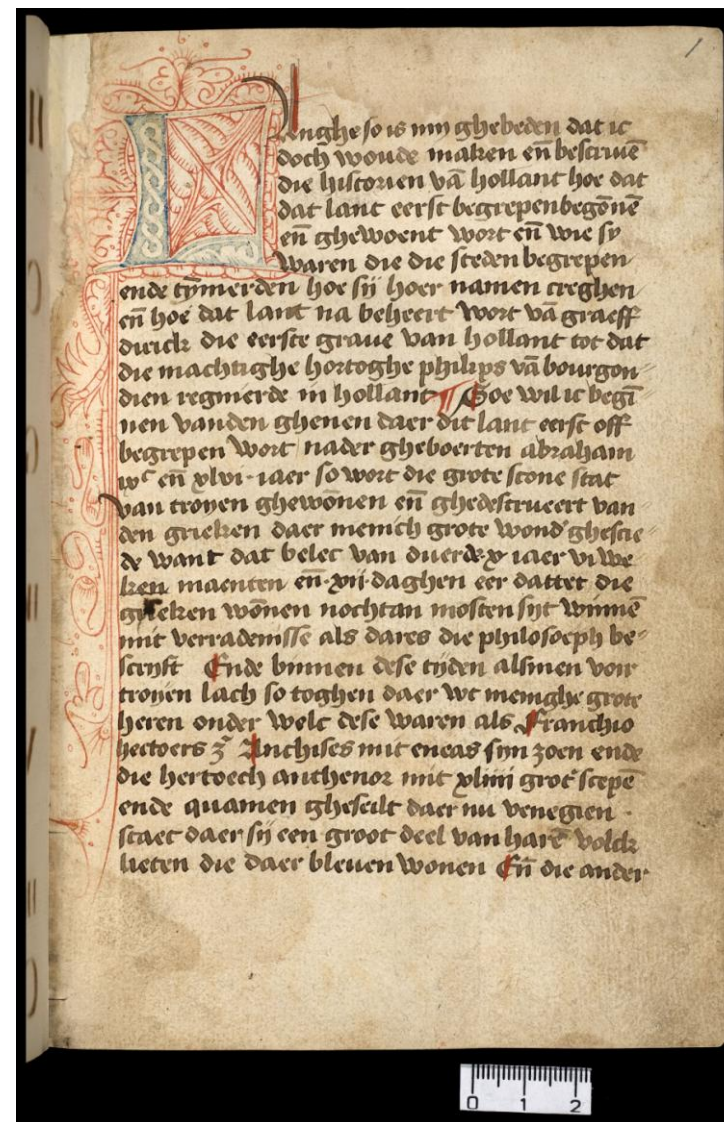 1
Langhe so is mijn ghebeden dat ic
doch woude maken en̄ bescriuē
die historien vā hollant hoe dat
dat lant eerst begrepen begōnē
en̄ ghewoent wort en̄ wie sy
waren die die steden begrepen
ende tȳmerden hoe sij hoer namen creghen
en̄ hoe dat lant na beheert wort vā graeff
dierick die eerste graue van hollant tot dat
die machtighe hortoghe philips vā bourgon
dien regnierde in hollant ¶ Soe wil ic begī
nen vanden ghenen daer dit lant eerst off
begrepen wort nader gheboerten abraham
en̄ xlvi iaer so wort die grote scone stat
van troyen ghewōnen en̄ ghedestrueert van
den grieken daer menich grote wond' ghescie
de want dat belec van duerde x iaer vi we
ken maenten en̄ xii daghen eer dattet die
grieken wōnen nochtan mosten sijt winnē
mit verradenisse als dares die philosoeph be
scrijft Ende binnen dese tijden alsmen voir
troyen lach so toghen daer wt menighe grote
heren onder welc dese waren als Franchio
hectoers z̄ Anchises mit eneas sijn zoen ende
die hertoech anthenor mit xliiii grot' scepē
ende quamen gheseilt daer nu venegien
staet daer sij een groot deel van harē volck
lieten die daer bleuen wonen En̄ die ander
0 1 2